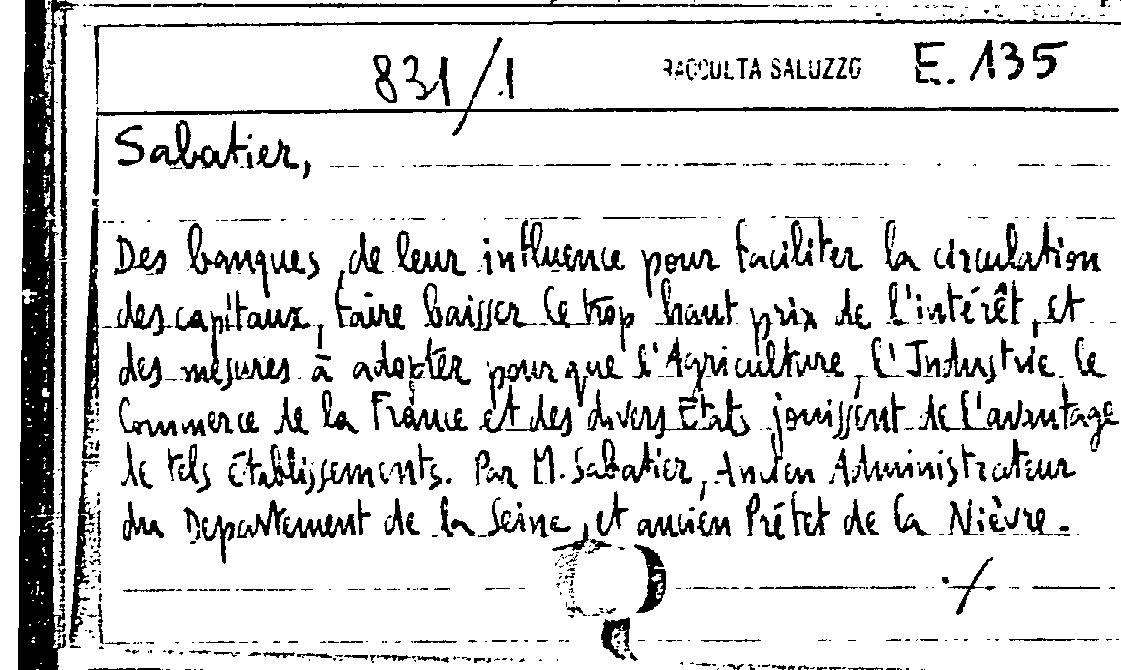 831/1 RACCOLTA SALUZZO E. 135
Sabatier,
Des banques, de leur influence pour faciliter la circulation
des capitaux, faire baisser le trop haut prix de l'intérêt, et
des mesures à adopter pour que l'Agriculture, l'Industrie, le
Commerce de la France et des divers Etats jouissent de l'avantage
de tels établissements. Par M. Sabatier, Ancien Administrateur
du Departement de la Seine, et ancien Préfet de la Nièvre.-
./